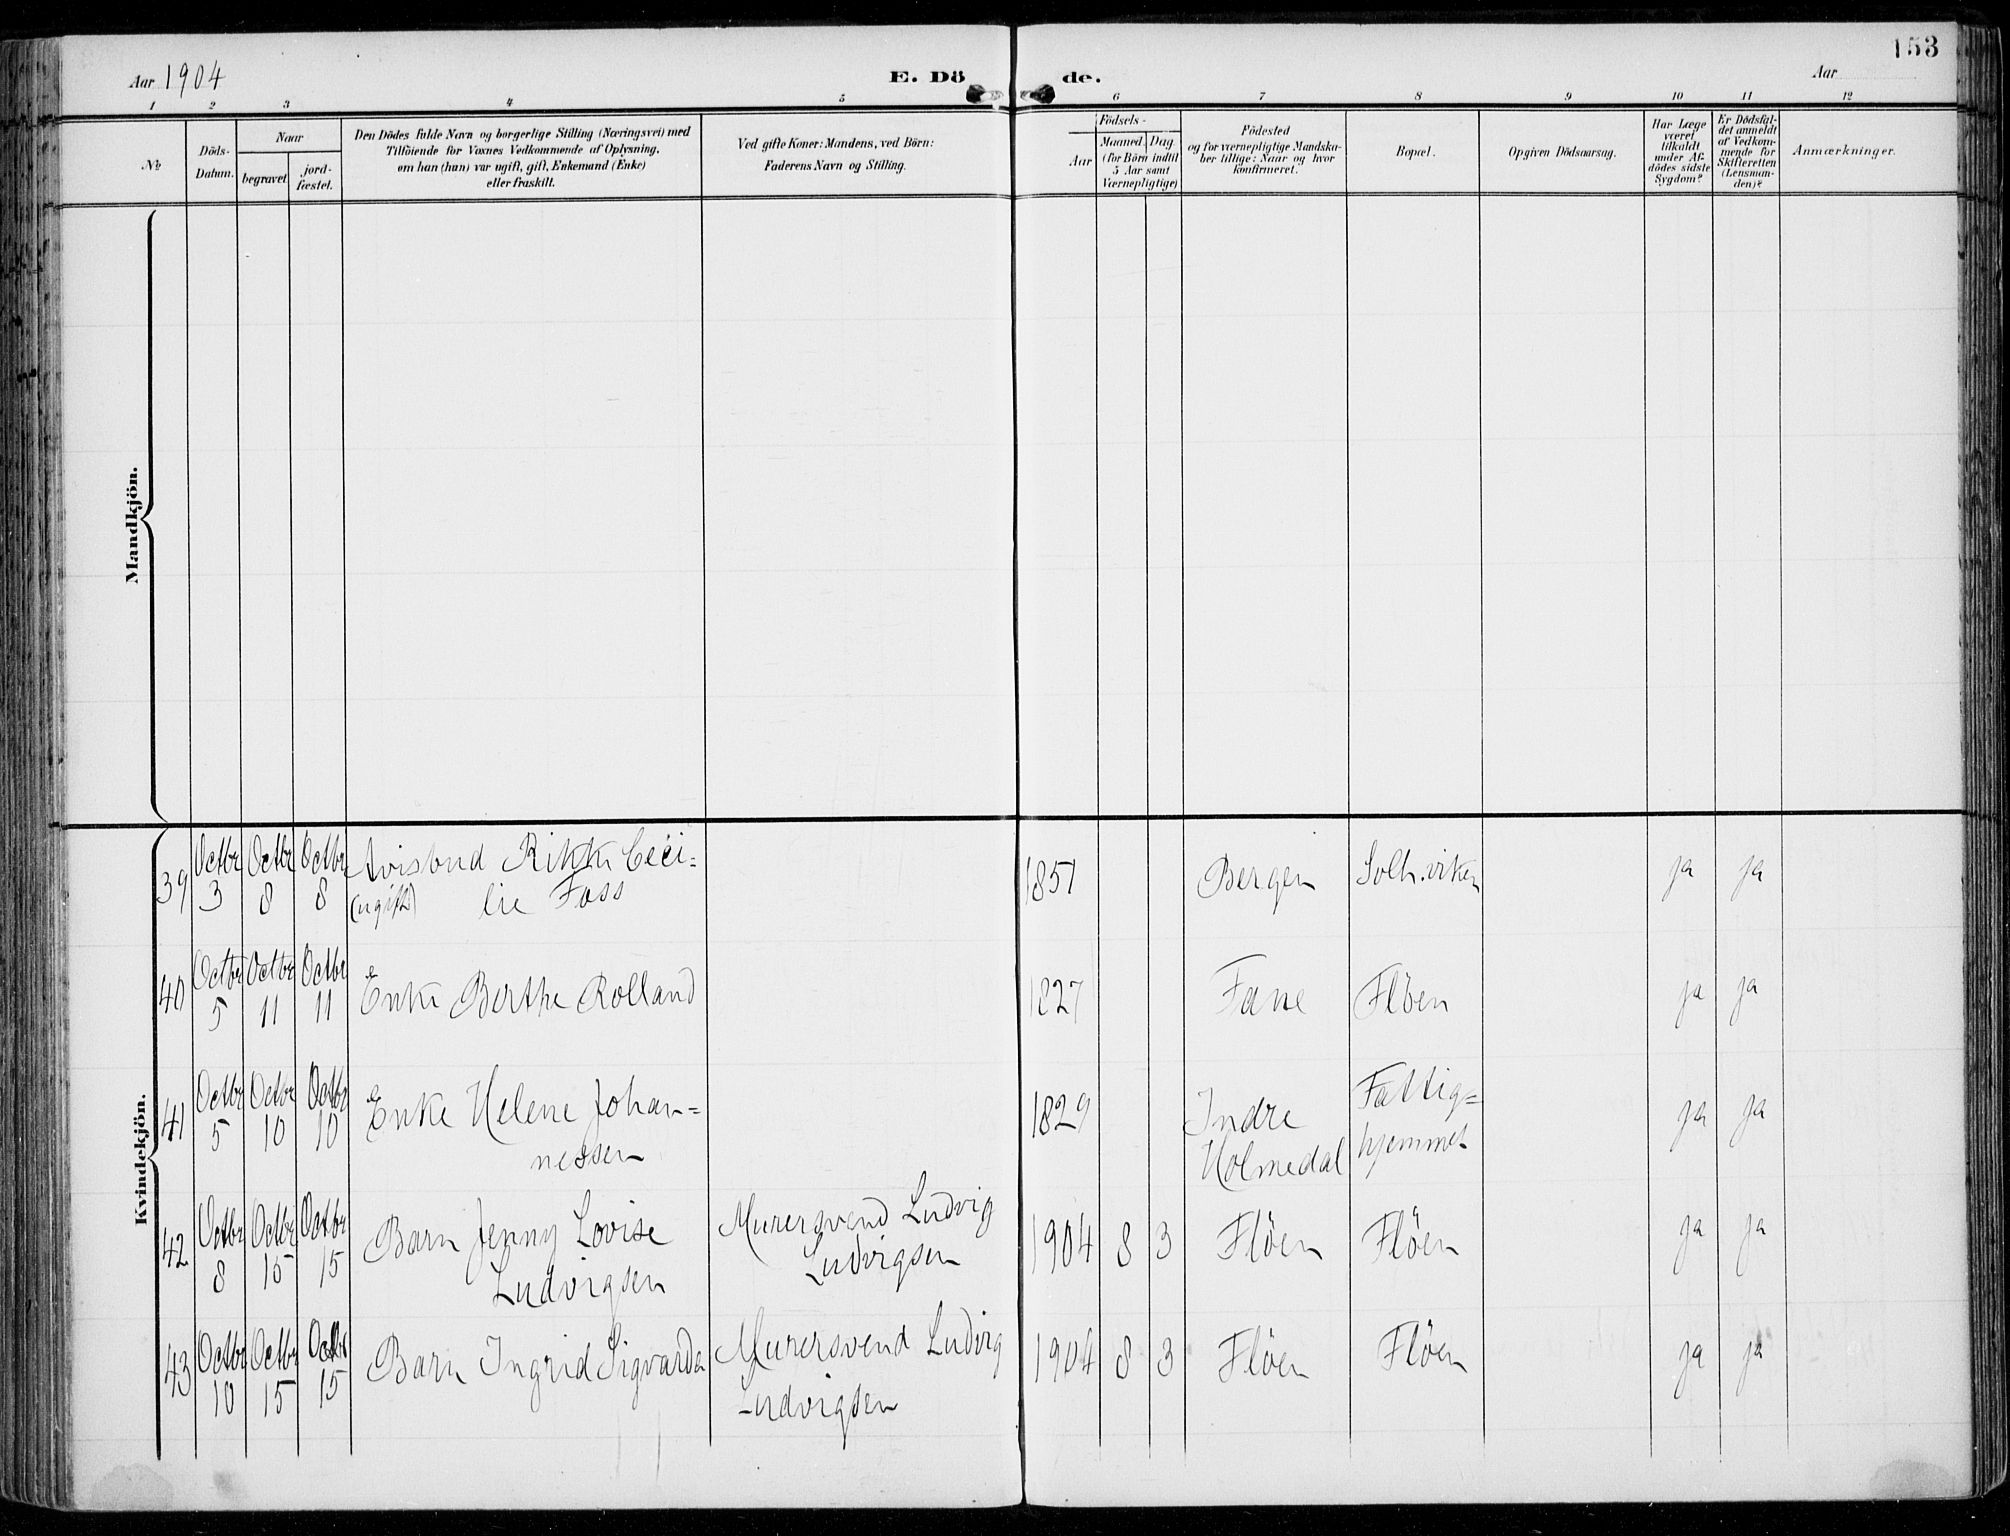 153
Aar 1904
E. Dö de.
Aar
1 2 3 4 5 6 7 8 9 10 11 12
No
Döds-
Datum.
Naar
begravet.
jord-
fæstet.
Den Dödes fulde Navn og borgerlige Stilling (Næringsvei) med
Tilföiende for Voxnes Vedkommende af Oplysning,
om han (hun) var ugift, gift, Enkemand (Enke)
eller fraskilt.
Ved gifte Koner: Mandens, ved Börn:
Faderens Navn og Stilling.
Födsels-
Aar
Maaned.
Dag
(for Börn indtil
5 Aar samt
Værnepligtige)
Födested
og for værnepligtige Mandska-
ber tillige: Naar og hvor
konfirmeret.
Bopæl.
Opgiven Dödsaarsag.
Har Læge
været
tilkaldt
under Af-
dödes sidste
Sygdom?
Er Dödsfal-
det anmeldt
af Vedkom-
mende for
Skifteretten
(Lensman-
den)?
Anmærkninger.
Mandkjön.
Kvindekjön.
39 Octbr 3 Octbr 8 Octbr 8 Rikke Ceci= 1851 Bergen Solh.viken ja ja
(ugift) lie Foss
40 Octbr 5 Octbr 11 Octbr 11 Enke Berthe Rolland 1827 Fane Flöen ja ja
41 Octbr 5 Octbr 10 Octbr 10 Enke Helene Johan= 1829 Indre Fattig= ja ja
nessen Holmedal hjemmet
42 Octbr 8 Octbr 15 Octbr 15 Barn Jenny Lovise Murersvend Ludvig 1904 8 3 Flöen Flöen ja ja
Ludvigsen Ludvigsen
43 Octbr 10 Octbr 15 Octbr 15 Barn Ingrid Sigvarda Murersvend Ludvig 1904 8 3 Flöen Flöen ja ja
Ludvigsen